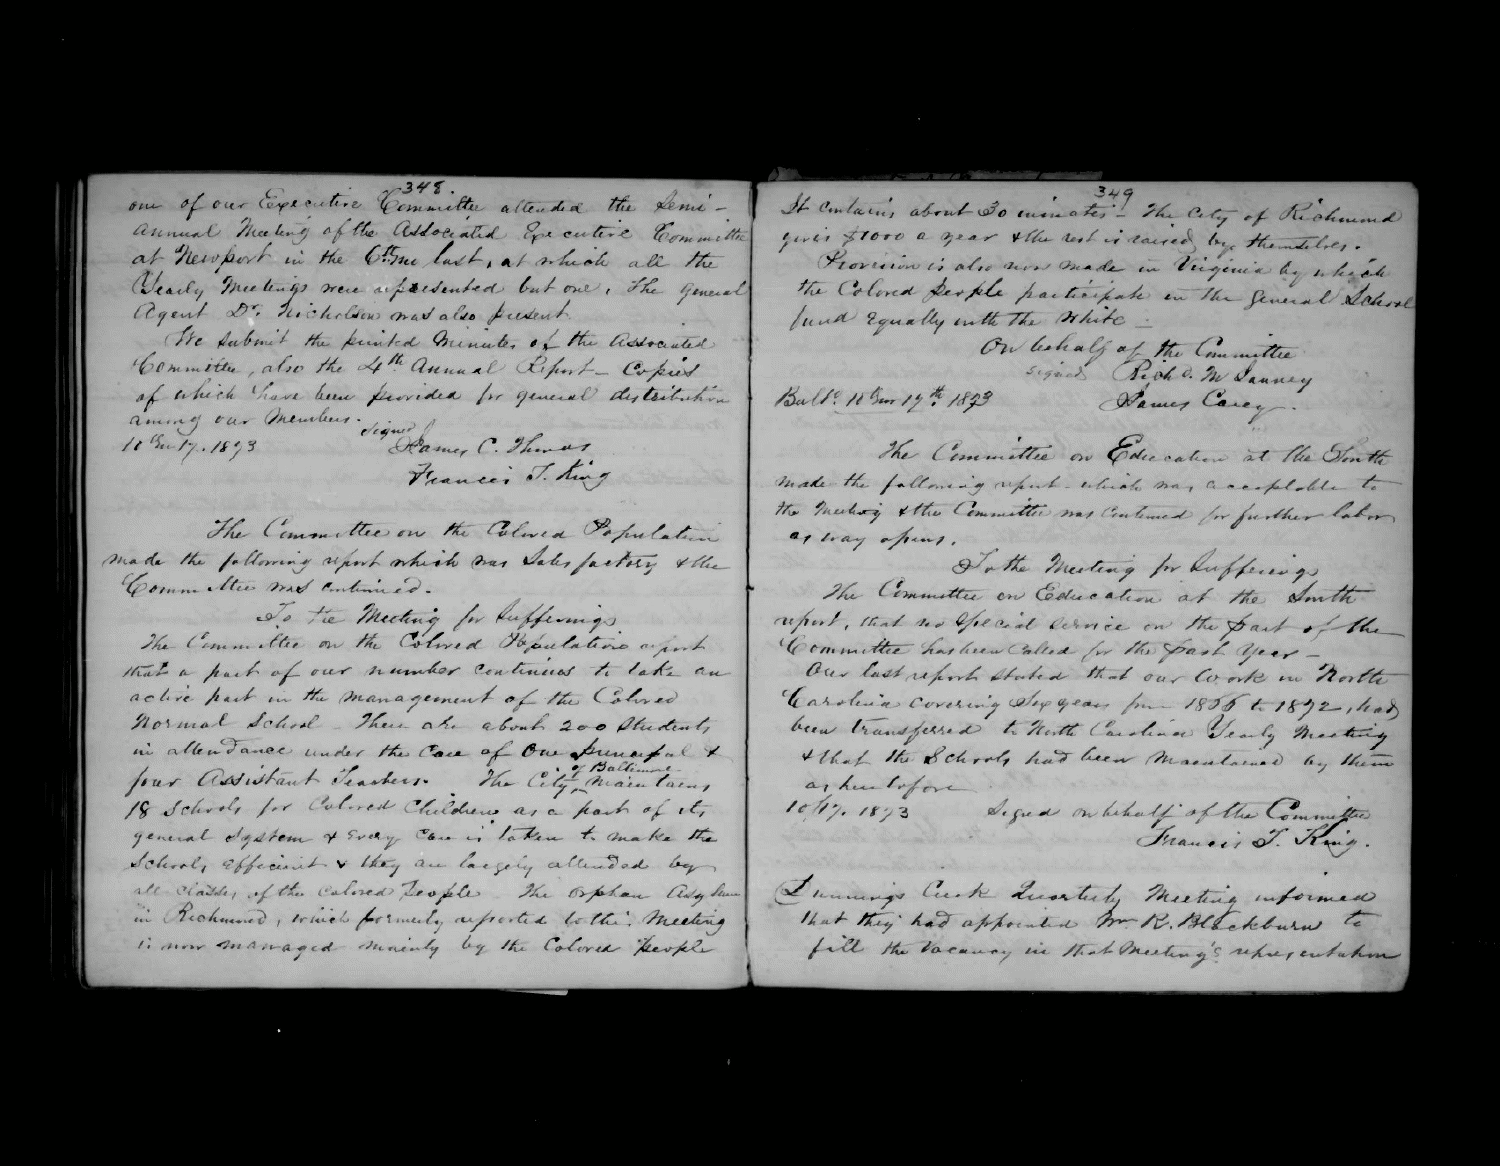 348.
one of our Executive Committee attended the Semi-
Annual Meeting of the Associated Executive Committee
at Newport in the 6th mo last, at which all the
Yearly Meetings were represented but one. The General
Agent Dr. Nicholson was also present.
We submit the printed Minutes of the Associated
Committee, also the 4th Annual Report - Copies
of which have been provided for general distribution
among our Members.
Signed
10 mo 17. 1873 James C. Thomas
Francis T. King
The Committee on the Colored Population
made the following report which was satisfactory & the
Committee was continued.
To the Meeting for Sufferings
The Committee on the Colored Population report
that a part of our number continues to take an
active part in the management of the Colored
Normal School - There are about 200 Students
in attendance under the care of One principal &
four Assistant Teachers. The City of Baltimore Maintains
18 Schools for Colored Children as a part of its
general System & every care is taken to make the
Schools efficient & they are largely attended by
all classes of the Colored People. The Orphan Asylum
in Richmond, which formerly reported to this Meeting
is now managed mainly by the Colored People
349
It contains about 30 inmates - The City of Richmond
gives $1000 a year & the rest is raised by themselves.
Provision is also now made in Virginia by which
the Colored People participate in the general School
fund equally with the White -
On behalf of the Committee
Signed Richd. M Janney
Balto. 10 mo 17th 1873 James Carey.
The Committee on Education at the South
made the following report - which was acceptable to
the Meeting & the Committee was continued for further labor
as way opens.
To the Meeting for Sufferings
The Committee on Education at the South
report, that no Special service on the part of the
Committee has been called for the past Year -
Our last report stated that our work in North
Carolina covering Six years from 1866 to 1872, had
been transferred to North Carolina Yearly Meeting
& that the Schools had been Maintained by them
as heretofore
10/17. 1873 Signed on behalf of the Committee
Francis T. King.
Dunnings Creek Quarterly Meeting informed
that they had appointed Wm. R. Blackburn to
fill the Vacancy in that Meeting's representation